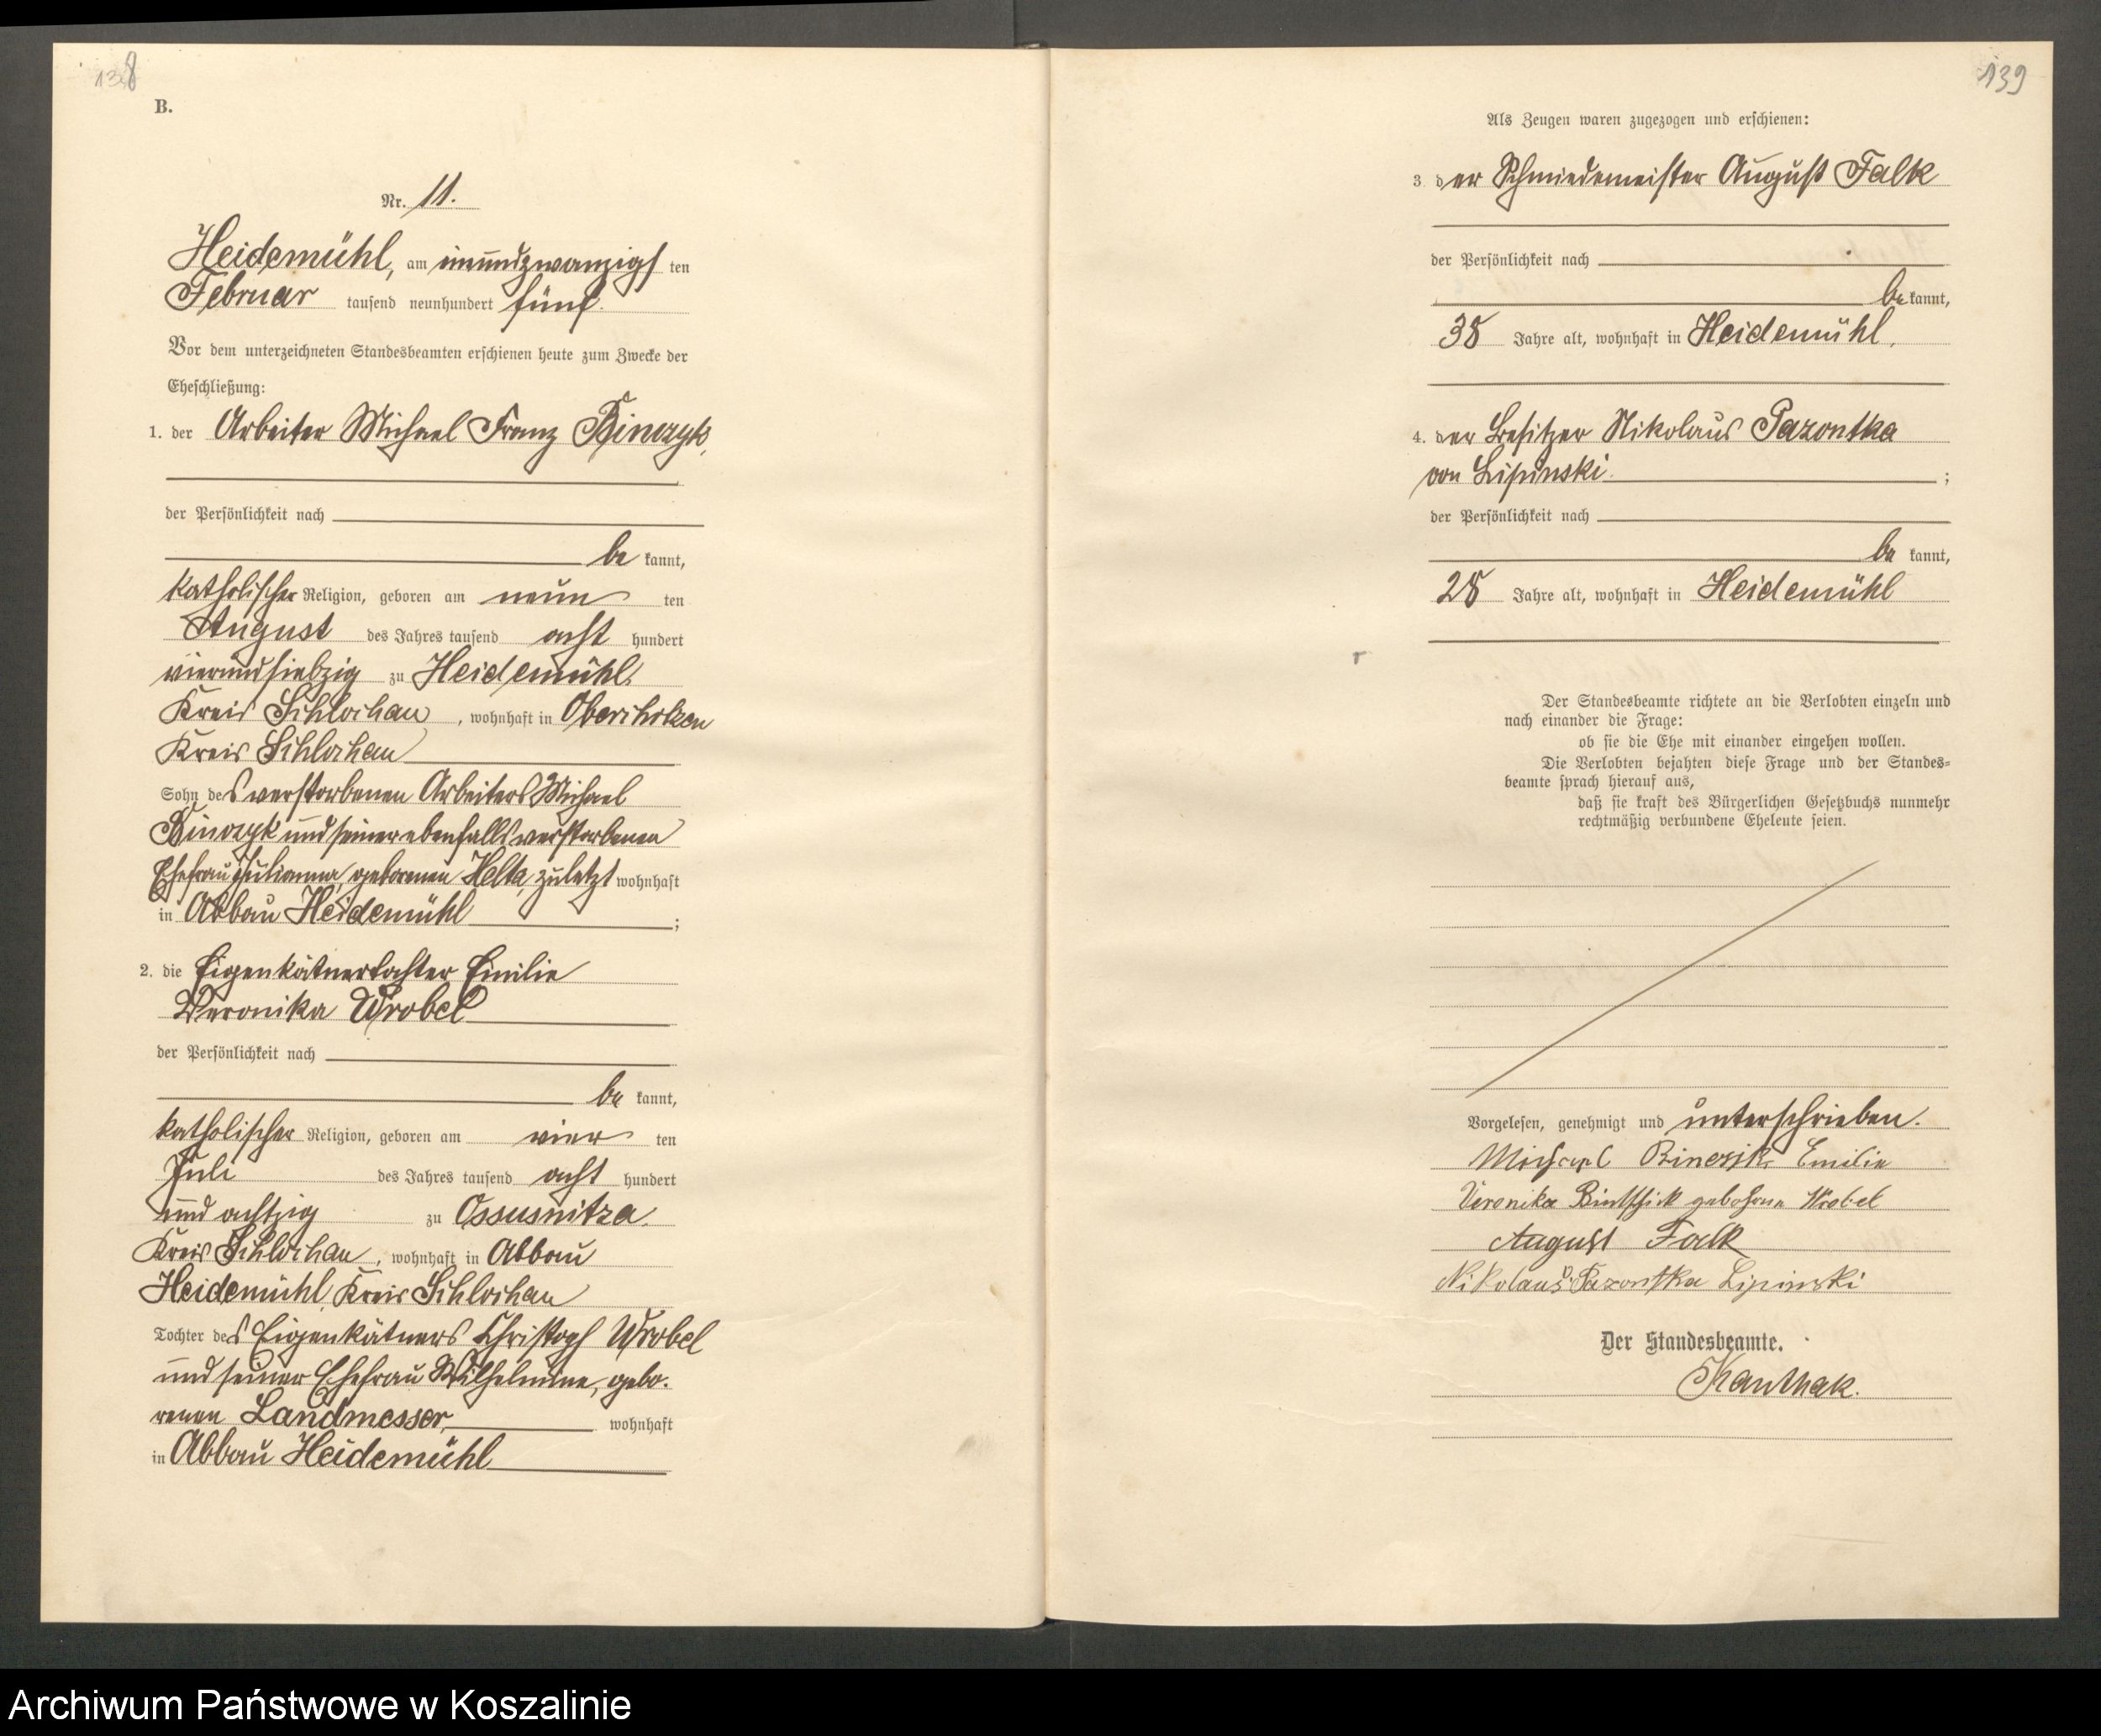 138
B.
Nr. 11.
Heidemühl, am einundzwanzigsten
Februar tausend neunhundert fünf.
Vor dem unterzeichneten Standesbeamten erschienen heute zum Zwecke der
Eheschließung:
1. der Arbeiter Michael Franz Binczyk,
der Persönlichkeit nach
be kannt,
katholischer Religion, geboren am neun ten
August des Jahres tausend acht hundert
vierundsiebzig zu Heidemühl,
Kreis Schlochau, wohnhaft in
Kreis Schlochau
Sohn des verstorbenen Arbeiters Michael
Binczyk und seiner ebenfalls verstorbenen
Ehefrau Julianna, geborenen Helta, zuletzt wohnhaft
in Abbau Heidemühl ;
2. die Eigenkätnertochter Emilie
Veronika Wrobel
der Persönlichkeit nach
be kannt,
katholischer Religion, geboren am vier ten
Juli des Jahres tausend acht hundert
und achtzig zu Ossusnitza,
Kreis Schlochau, wohnhaft in Abbau
Heidemühl, Kreis Schlochau
Tochter des Eigenkätners Christoph Wrobel
und seiner Ehefrau Wilhelmine, gebo-
renen Landmesser, wohnhaft
in Abbau Heidemühl
139
Als Zeugen waren zugezogen und erschienen:
3. der Schmiedemeister August Falk
der Persönlichkeit nach
be kannt,
38 Jahre alt, wohnhaft in Heidemühl.
4. der Besitzer Nikolaus Pazontka
von Lipinski ;
der Persönlichkeit nach
be kannt,
28 Jahre alt, wohnhaft in Heidemühl
Der Standesbeamte richtete an die Verlobten einzeln und
nach einander die Frage:
ob sie die Ehe mit einander eingehen wollen.
Die Verlobten bejahten diese Frage und der Standes=
beamte sprach hierauf aus,
daß sie kraft des Bürgerlichen Gesetzbuchs nunmehr
rechtmäßig verbundene Eheleute seien.
Vorgelesen, genehmigt und unterschrieben.
Michael Binczik Emilie
Veronika Bintschik geborene Wrobel
August Falk
Nikolaus v Pazontka Lipinski
Der Standesbeamte.
Kanthak.
Archiwum Państwowe w Koszalinie